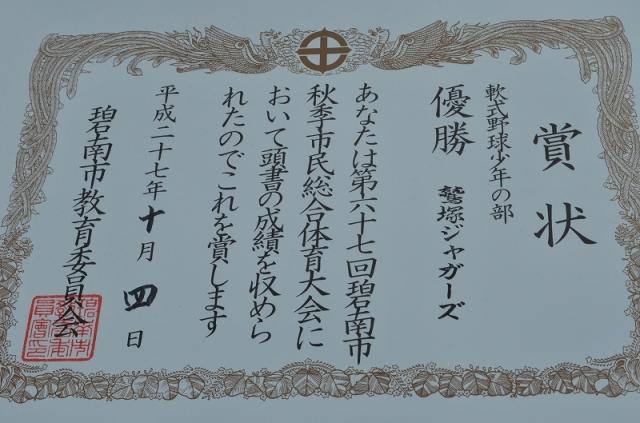 賞状
軟式野球少年の部
優勝 鷲塚ジャガーズ
あなたは第六十七回碧南市
秋季市民総合体育大会に
おいて頭書の成績を収めら
れたのでこれを賞します
平成二十七年十月四日
碧南市教育委員会